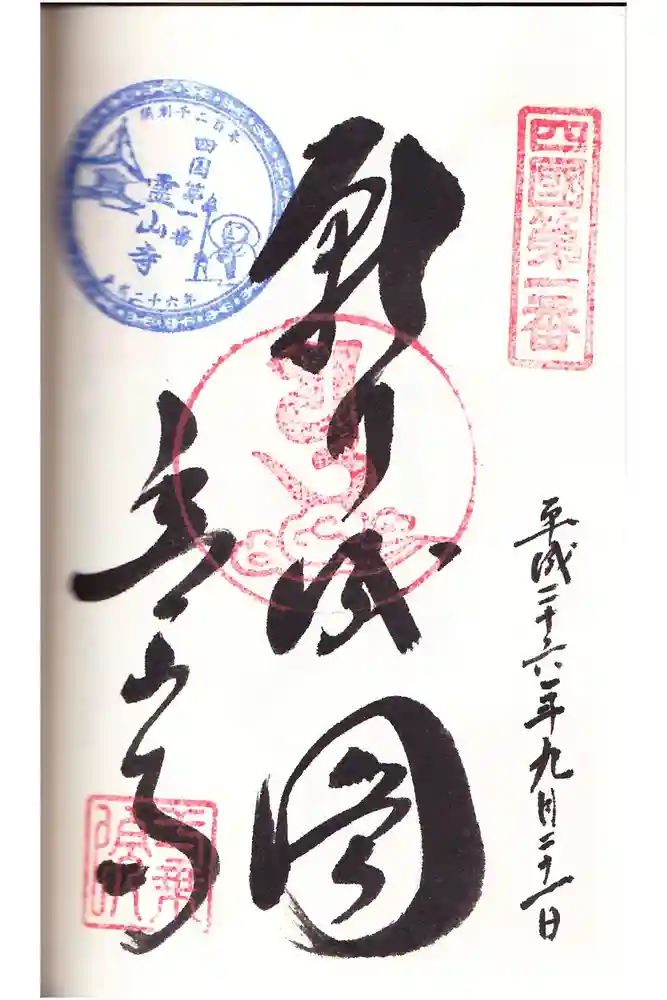 四國第一番
平成二十六年九月二十一日
願行成圓
靈山寺
開創千二百年
四国第一番
靈山寺
平成二十六年